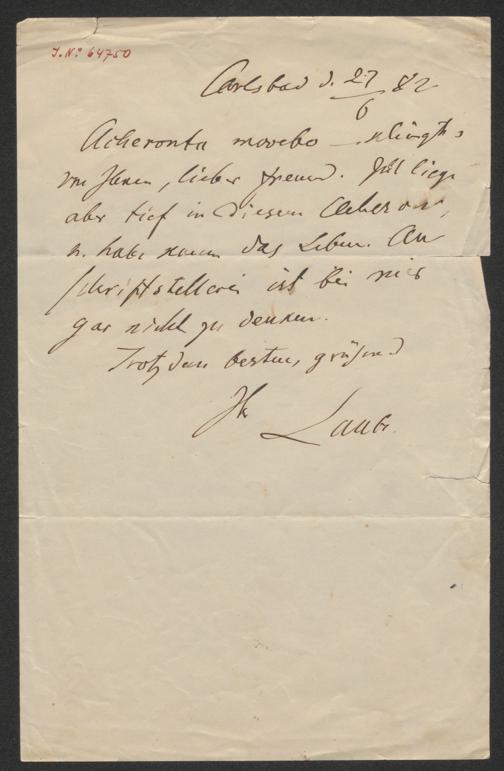 J. No 64750
Carlsbad d. 27/6 82
Acheronta movebo – klingt's
von Ihnen, lieber Freund. Ich liege
aber tief in diesem Acheron,
u. habe kaum das Leben. An
Schriftstellerei ist bei mir
gar nicht zu denken.
Trotzdem bestens grüßend
Ihr Laube.